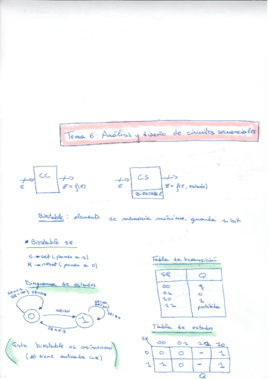 Tema 6: Análisis y diseño de circuitos secuenciales
CC
E
Z = f(E)
CS
E
Z = f(E, estado)
Biestable: elemento de memoria mínimo, guarda 1 bit
• Biestable SR
S → set (pone a 1)
R → reset (pone a 0)
Diagrama de estados
0
1
Este biestable es asíncrono
(no tiene entrada CLK)
Tabla de transición
SR Q
00 q
01 0
10 1
11 prohibida
Tabla de estados
SR 00 01 11 10
0 0 0 - 1
1 1 0 - 1
Q